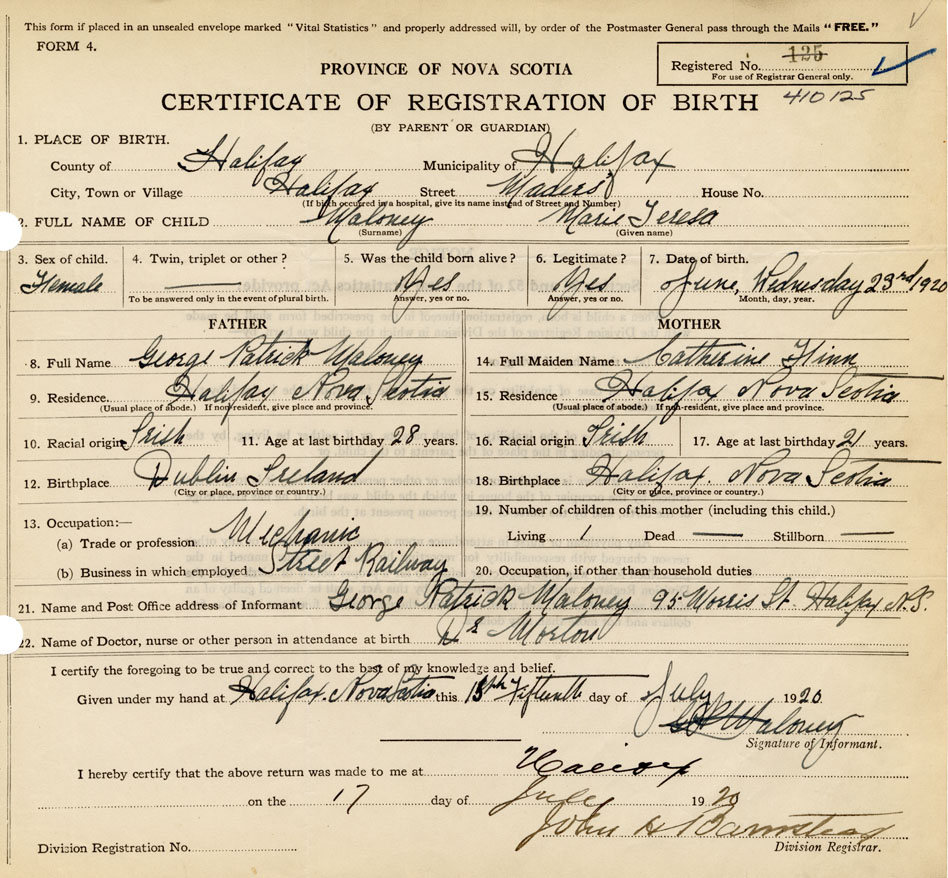 This form if placed in an unsealed envelope marked "Vital Statistics" and properly addressed will, by order of the Postmaster General pass through the Mails "FREE."
FORM 4.
Registered No. 125
For use of Registrar General only.
410125
PROVINCE OF NOVA SCOTIA
CERTIFICATE OF REGISTRATION OF BIRTH
(BY PARENT OR GUARDIAN)
1. PLACE OF BIRTH.
County of Halifax Municipality of Halifax
City, Town or Village Halifax Street Maders' House No.
(If birth occurred in a hospital, give its name instead of Street and Number)
2. FULL NAME OF CHILD Maloney Marie Teresa
(Surname) (Given name)
3. Sex of child. 4. Twin, triplet or other ? 5. Was the child born alive ? 6. Legitimate ? 7. Date of birth.
Female Yes Yes June, Wednesday 23rd 1920
To be answered only in the event of plural birth. Answer, yes or no. Answer, yes or no. Month, day, year.
FATHER MOTHER
8. Full Name George Patrick Maloney 14. Full Maiden Name Catherine Flinn
9. Residence. Halifax Nova Scotia 15. Residence Halifax Nova Scotia
(Usual place of abode.) If non-resident, give place and province. (Usual place of abode.) If non-resident, give place and province.
10. Racial origin Irish 11. Age at last birthday 28 years. 16. Racial origin Irish 17. Age at last birthday 21 years.
12. Birthplace Dublin Ireland 18. Birthplace Halifax. Nova Scotia
(City or place, province or country.) (City or place, province or country.)
13. Occupation:— 19. Number of children of this mother (including this child.)
(a) Trade or profession Mechanic Living 1 Dead Stillborn
(b) Business in which employed Street Railway 20. Occupation, if other than household duties
21. Name and Post Office address of Informant George Patrick Maloney 95 Morris St. Halifax N.S.
22. Name of Doctor, nurse or other person in attendance at birth Dr Morton
I certify the foregoing to be true and correct to the best of my knowledge and belief.
Given under my hand at Halifax. Nova Scotia this 15th Fifteenth day of July 1920
G P Maloney
Signature of Informant.
I hereby certify that the above return was made to me at Halifax
on the 17 day of July 1920
John H Barnstead
Division Registration No. Division Registrar.